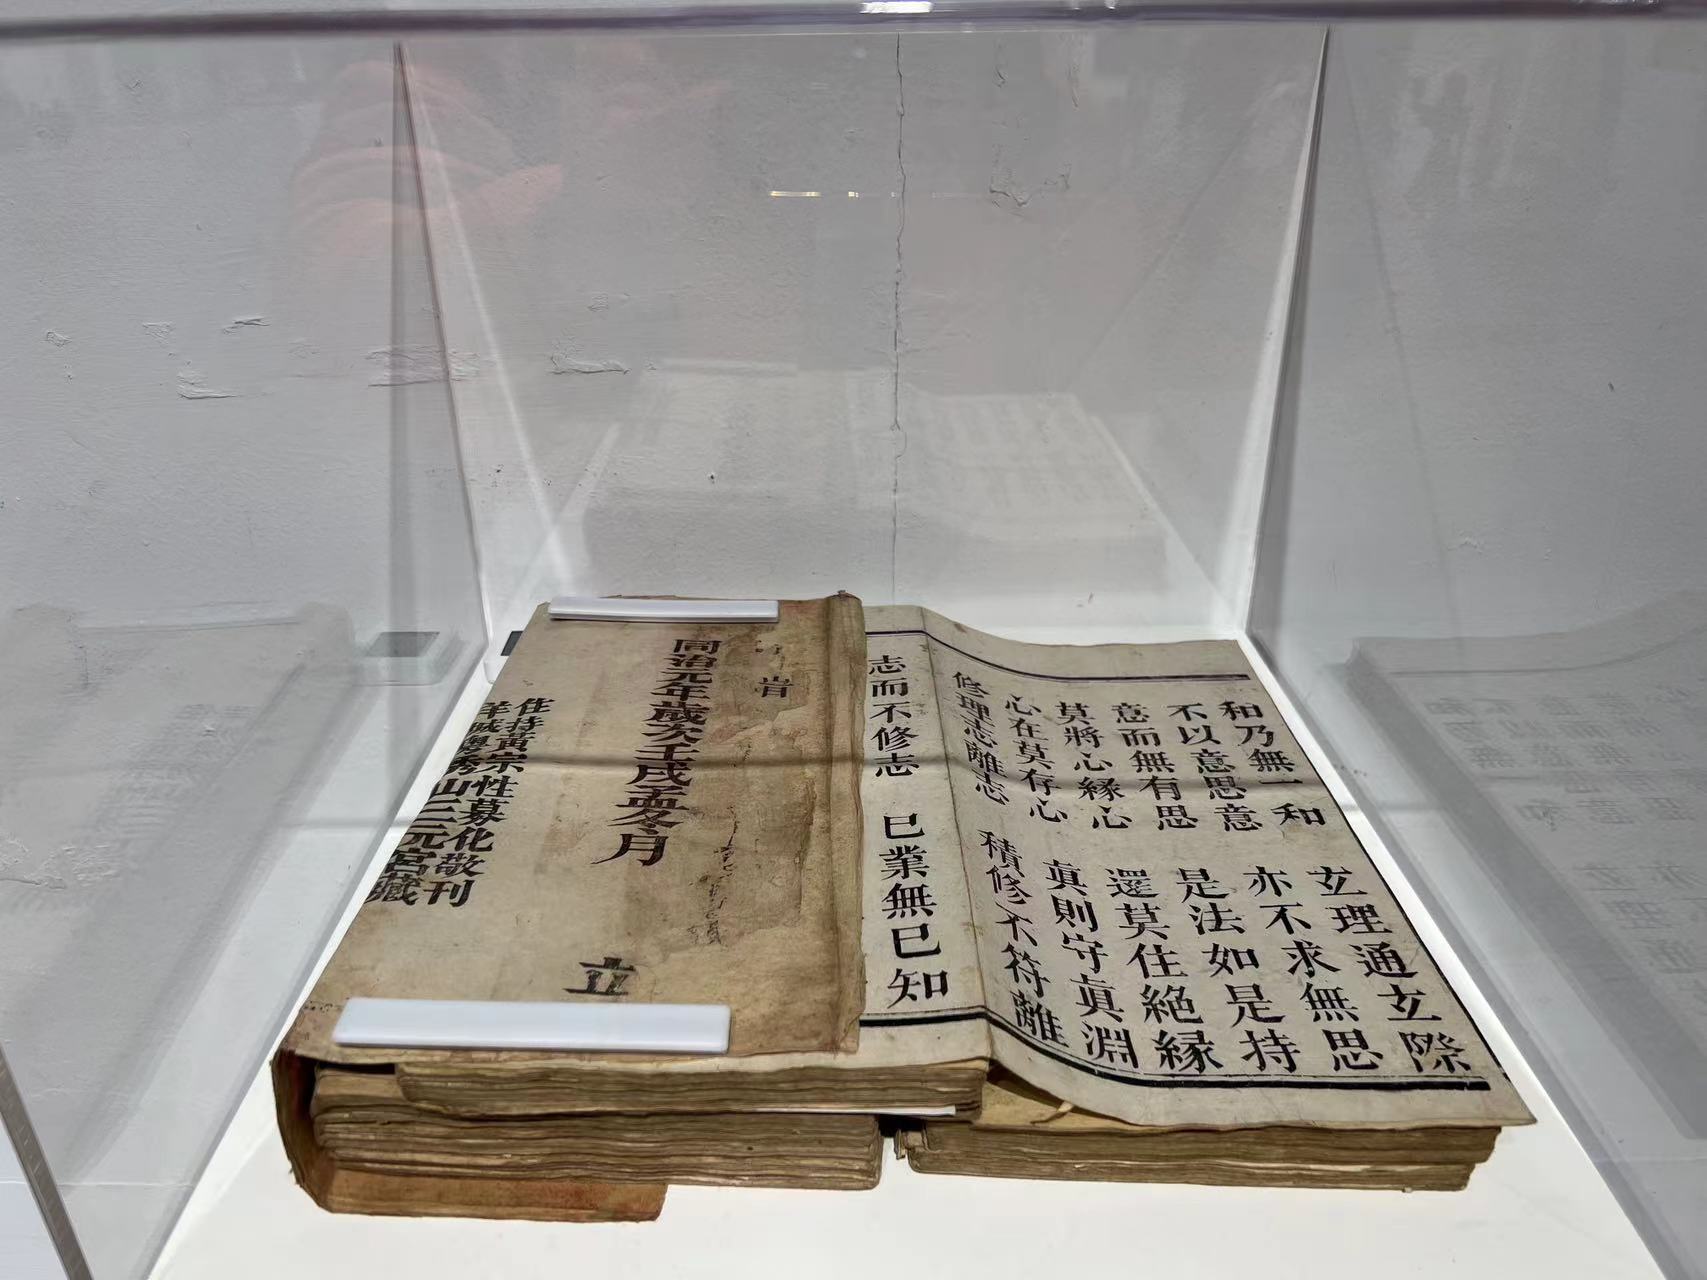 和乃無一和 玄理通玄際
不以意思意 亦不求無思
意而無有思 是法如是持
莫將心縁心 還莫住絕縁
心在莫存心 眞則守眞淵
修理志離志 積修不符離
志而不修志 已業無已知
旹
同治元年歲次壬戌孟冬月 立
住持黃宗性募化敬刊
羊城粵秀山三元宮藏